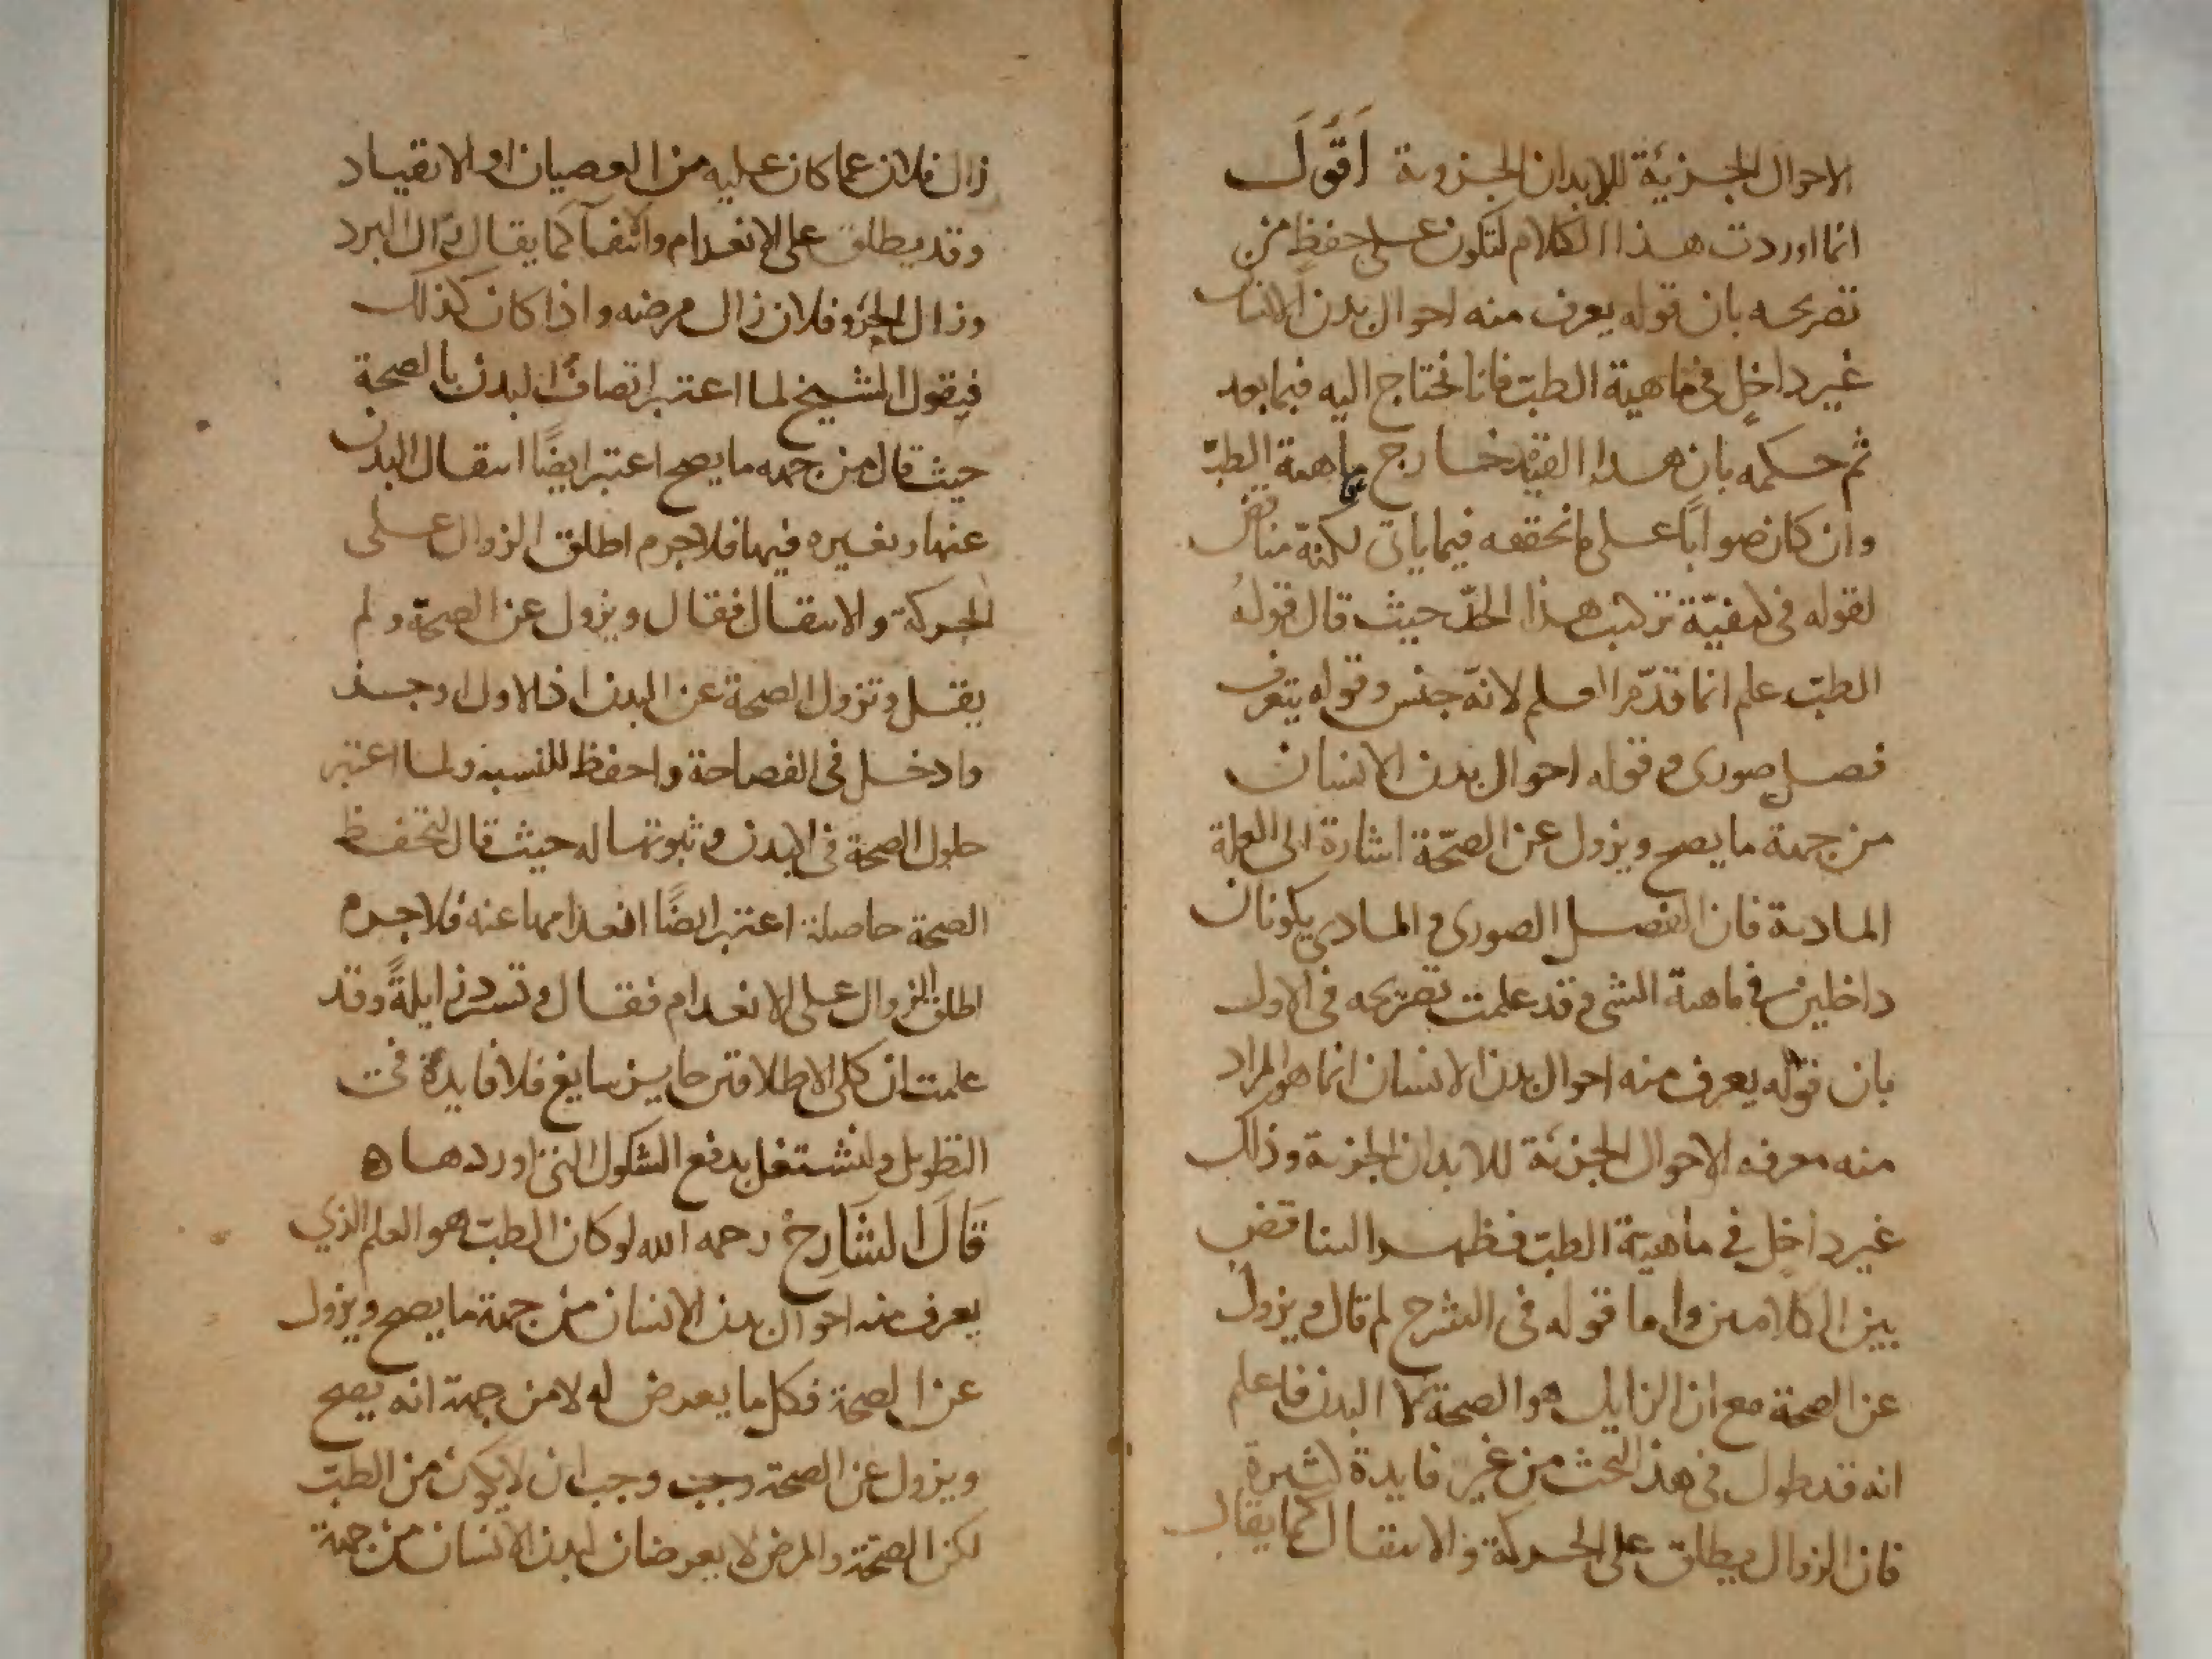 الاحوال الجزئية للابدان الجزوية اَقُولَ
انما اوردت هذا الكلام لتكون على حفظ من
تصريحه بان قوله يعرف منه احوال بدن الانسان
غير داخل فى ماهية الطبّ فانا نحتاج اليه فيما بعد
ثم حكمه بان هدا القيد خارج ماهية الطبّ
وان كان صوابًا على ما نحققه فيما ياتى لكنه مناقض
لقوله فى كيفيّة تركيب هذا الحدّ حيث قال قولهُ
الطبّ علم انما قدّم العلم لانّه جنس وقوله يتعرف
فصل صورى وقوله احوال بدن الانسان
من جهة ما يصح ويزول عن الصحّة اشارة الى العلة
المادية فان الفصل الصورى والمادى يكونان
داخلين فى ماهية الشى وقد علمت تصريحه فى الاول
بان قوله يعرف منه احوال بدن الانسان انما هو المراد
منه معرفه الاحوال الجزئية للابدان الجزية وذلك
غير داخل فى ماهية الطبّ فظهر التناقض
بين الكلامين واما قوله فى الشرح لم قال ويزول
عن الصحة مع ان الزايل هو الصحة لا البدن فاعلم
انه قد طول فى هذا البحث من غير فايدة كثيرة
فان الزوال يطلق على الحركة والانتقال كما يقال
زال فلان عما كان عليه من العصيان او الانقياد
وقد يطلق على الانعدام والانتفآ كما يقال زال البرد
وزال الحرّ وفلان زال مرضه واذا كان كذلك
فيقول الشيخ لما اعتبر اتصاف البدن بالصحة
حيث قال من جهه ما يصح اعتبر ايضًا انتقال البدن
عنها وتغييره فيها فلا جرم اطلق الزوال على
الحركة والانتقال فقال ويزول عن الصحّة ولم
يقل وتزول الصحة عن البدن اذ الاول اوجـــز
وادخل فى الفصاحة واحفظ للنسبه ولما اعتبر
حلول الصحة فى البدن وثبوتها له حيث قال لتحفظ
الصحة حاصلة اعتبر ايضًا انعدامها عنه فلا جرم
اطلق الزوال على الانعدام فقال وتسترد زايلةً وقد
علمت ان كلى الاطلاقين جايزين سايغ فلا فايدة فى
التطويل ولنشتغل بدفع الشكوك التى اوردها ه
قَالَ الشَارِحُ رحمه الله لو كان الطبّ هو العلم الذي
يعرف منه احوال بدن الانسان من جهة ما يصح ويزول
عن الصحة فكل ما يعرض له لا من جهة انه يصح
ويزول عن الصحة وجب وجب ان لا يكون من الطبّ
لكن الصحّة والمرض لا يعرضان لبدن الانسان من جهة